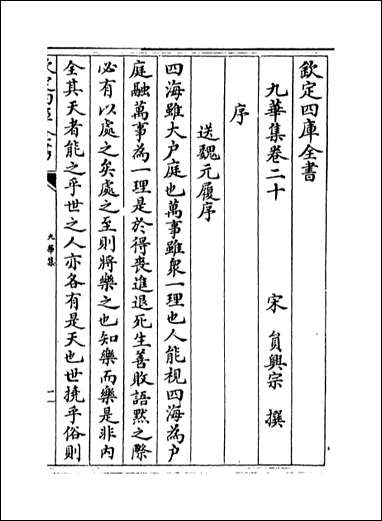 欽定四庫全書
九華集卷二十
宋 員興宗 撰
序
送魏元履序
四海雖大户庭也萬事雖衆一理也人能視四海為户
庭融萬事為一理是於得喪進退死生善敗語默之際
必有以處之矣處之至則將樂之也知樂而樂是非内
全其天者能之乎世之人亦各有是天也世撓乎俗則
九華集
一